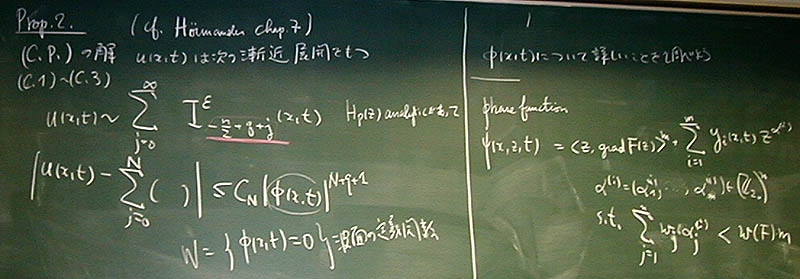 Prop. 2. (cf. Hörmander chap. 7)
(C.P.) の解 u(x,t) は次の漸近展開をもつ
(C.1)~(C.3)
u(x,t) ~ \sum_{j=0}^{∞} I^{ε}_{-\frac{n}{2}+q+j}(x,t) H_p(z) analyticにあって
| u(x,t) - \sum_{j=0}^{N} ( ) | ≤ C_N |ϕ(x,t)|^{N+q+1}
W = { ϕ(x,t) = 0 } = 波面の定義関数
ϕ(x,t)について詳しいことを調べよう
phase function
ψ(x,z,t) = <z, grad F(z)>^m + \sum_{i=1}^{m} y_i(x,t) z^{α^{(i)}}
α^{(i)} = (α_1^{(i)}, ..., α_n^{(i)}) ∈ (ℤ_{≥0})^n
s.t. \sum_{j=1}^{n} w_j α_j^{(i)} < w(F) \cdot m